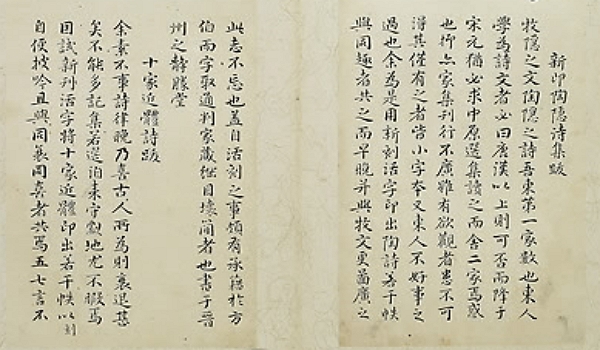 新印陶隱詩集跋
牧隱之文陶隱之詩吾東第一家數也東人
學為詩文者必曰唐漢以上則可否而降于
宋元猶必求中原選集讀之而舍二家焉惑
也抑二家集刊行不廣雖有欲觀者患不可
得其僅有之者皆小字本又東人不好事之
過也余為是用新刻活字印出陶詩若干帙
與同趣者共之而早晚并與牧文更啚廣之
此志不忘也蓋自活刻之事頗有承藉於方
伯而字取適判家藏
自壞簡者也書于晉
州之
堂
十家近體詩跋
余素不事詩律晚乃喜古人所為則衰退甚
矣不能多記集若
來守
地尤不暇焉
因試新刊活字將十家近體印出若干帙以
自便披吟且與同
同
者共焉五七言不